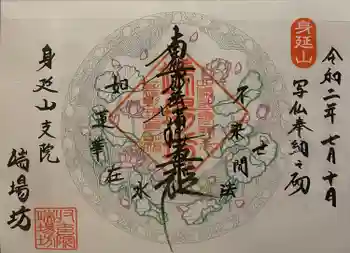 身延山
令和二年七月十日
写仏奉納之砌
南無妙法蓮華経
不染世間法
如蓮華在水
身延山支院
端場坊
端場坊